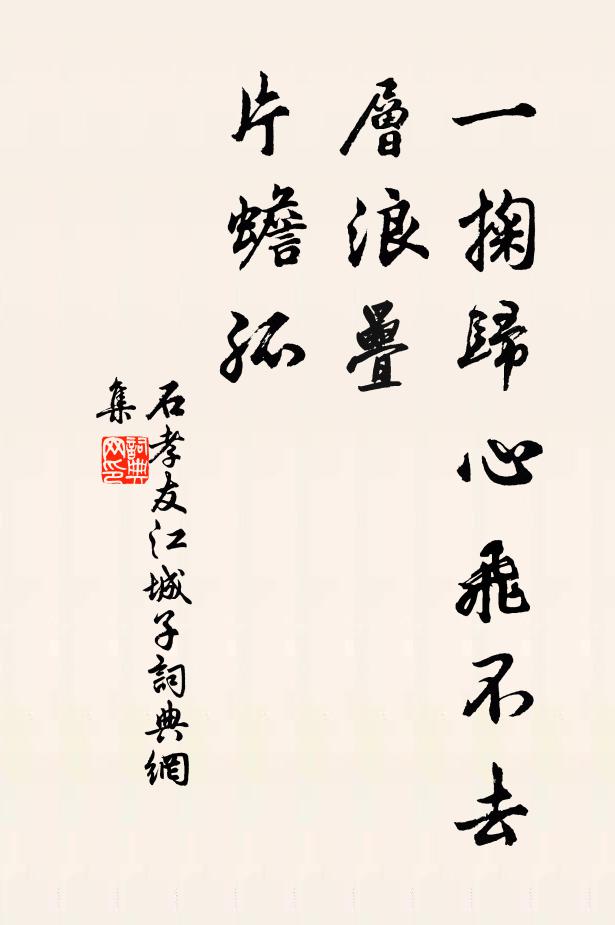 一掬歸心飛不去
層浪疊
片蟾孤
石孝友江城子詞典網
集
詞典
网印